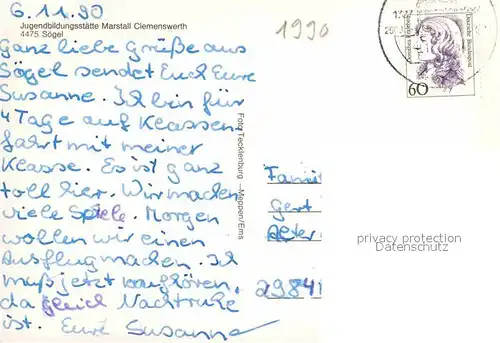 6.11.90
1990
Jugendbildungsstätte Marstall Clemenswerth
4475 Sögel
Ganz liebe Grüße aus
Sögel sendet Euch Eure
Susanne. Ich bin für
4 Tage auf Klassen-
fahrt mit meiner
Klasse. Es ist ganz
toll hier. Wir machen
viele Spiele. Morgen
wollen wir einen
Ausflug machen. Ich
muß jetzt aufhören,
da gleich Nachtruhe
ist. Eure Susanne
Foto Tecklenburg Meppen/Ems
Deutsche Bundespost
60
Famil
Gert
2984
privacy protection
Datenschutz